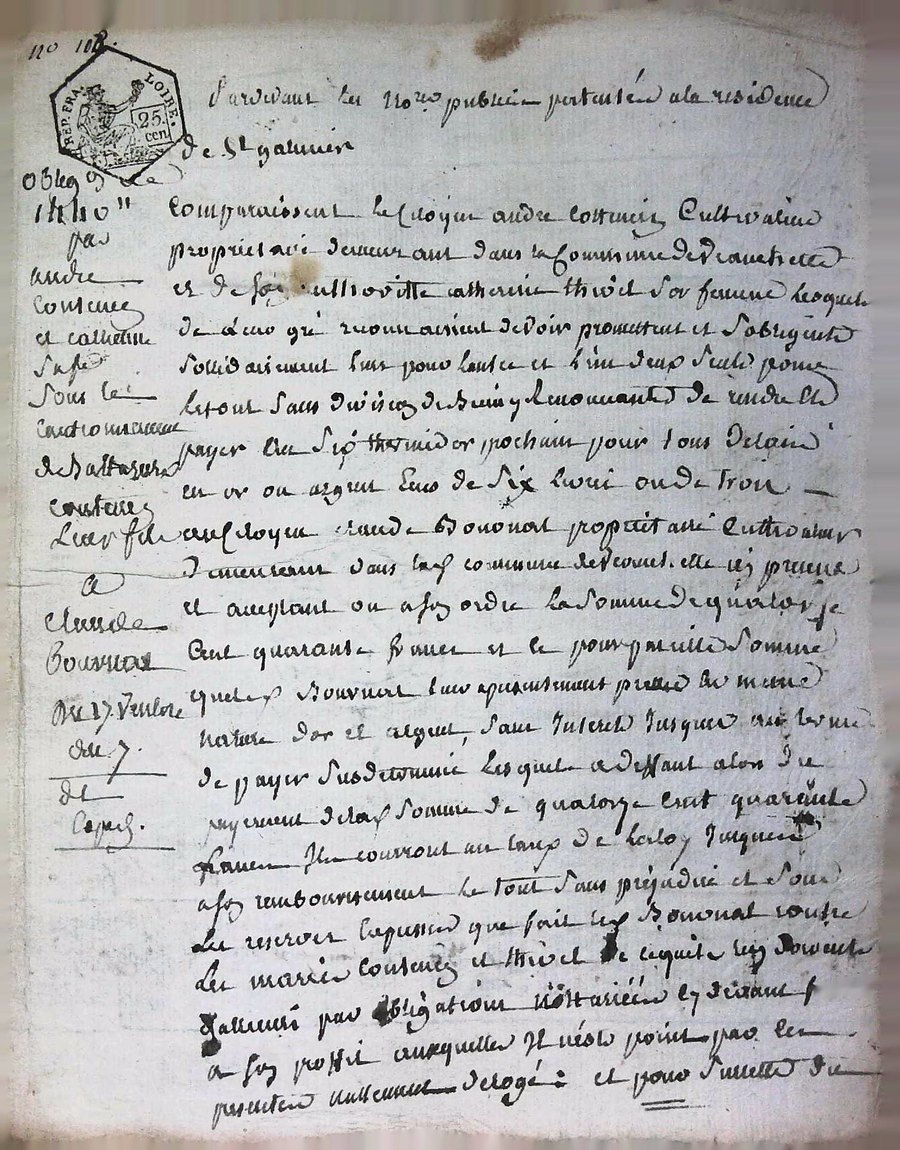 no 108.
REP. FRA. LOIRE. 25 cen
Pardevant les No.res publics patentés a la residence
de St galmier
Oblig on de
1440"
par
andre
Coutenes
et catherine
Sa fe
Sous le
Cautionnement
de Baltazard
Coutenes
Leur fils
a
Claude
Bournat
Du 17. Ventose
an 7.
Comparaissent le Citoyen andre Cultivateur
proprietaire demeurant dans la Commune de
et de Son authorité catherine thivel Son femme Lesquels
de Leur gré reconnaissent devoir promettent et Sobligent
Sollidairement L'un pour Lautre et L'un deux Seuls pour
Le tout Sans division de Biens y Renonçants de rendre et
payer au Six thermidor prochain pour tous Delais
en or ou argent Ecus de Six Livres ou de trois
au Citoyen Claude Bournat proprietaire Cultivateur
Demeurant dans lad commune de ici present
et acceptant ou a Son ordre La Somme de quatorze
Cent quarante francs et ce pour pareille Somme
que led Bournat Leur a presentement pretté en meme
nature dor et argent, Sans Interet Jusques au terme
de payer Susdetterminé Lesquels a deffaut alors du
payement de lad Somme de quatorze Cent quarante
francs Ils courront au taux de La loy Jusques
a Son remboursement Le tout Sans préjudice et Sous
Les reserves Expresses que fait led Bournat contre
Les mariés Coutenes et thivel de ce quils lui doivent
d'ailleurs par obligations nottariées cy devant
a Son proffit auxquelles Il n'est point par Les
presentes nullement derogé: et pour Surette du